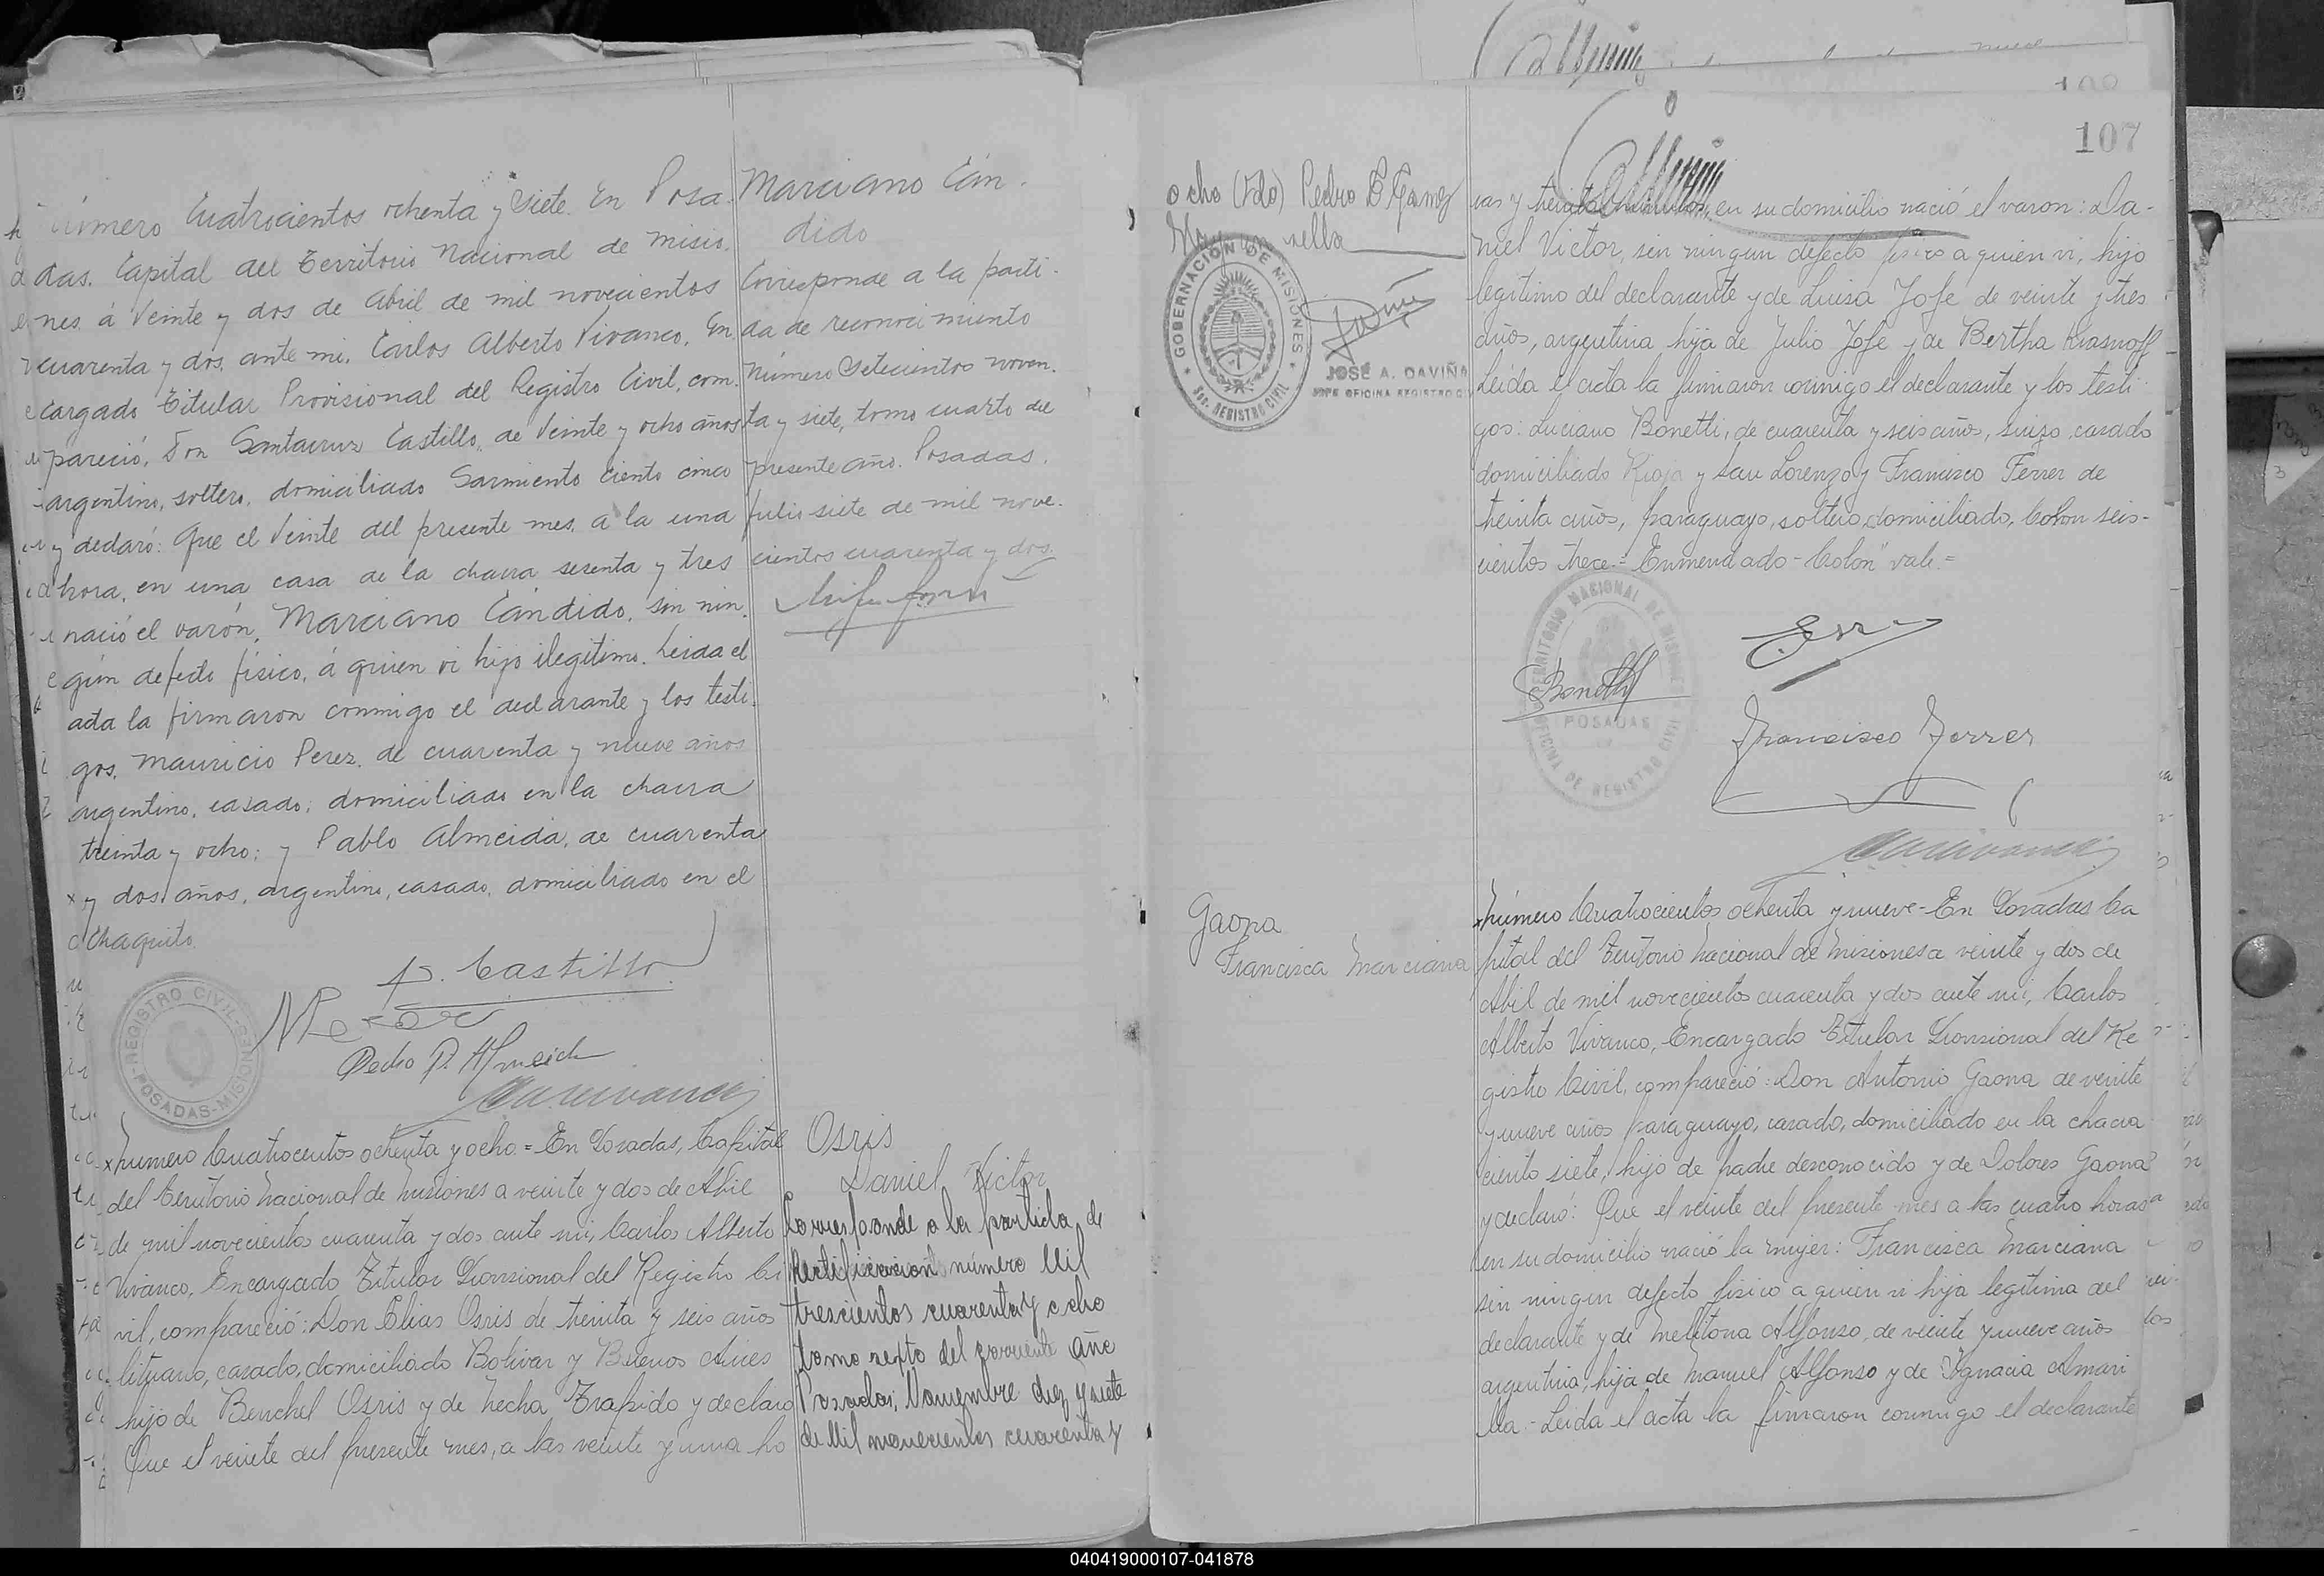 Número Cuatrocientos ochenta y siete. En Posa-
das. Capital del Territorio Nacional de Misio-
nes. á Veinte y dos de Abril de mil novecientos
cuarenta y dos, ante mi, Carlos Alberto Vivanco, En-
cargado Titular Provisional del Registro Civil, com-
pareció, Don Santacruz Castillo, de Veinte y ocho años
argentino, soltero, domiciliado Sarmiento ciento cinco
y declaró: Que el Veinte del presente mes, a la una
hora, en una casa de la chacra sesenta y tres
nació el varón, Marciano Cándido, sin nin-
gún defecto físico, á quien vi hijo ilegítimo. Leida el
acta la firmaron conmigo el declarante y los testi-
gos, Mauricio Perez, de cuarenta y nueve años
argentino, casado, domiciliado en la chacra
treinta y ocho; y Pablo Almeida, de cuarenta
y dos años, argentino, casado, domiciliado en el
Chaquito.
Marciano Cán-
dido
Corresponde a la parti-
da de reconocimiento
número Setecientos noven-
ta y siete, tomo cuarto del
presente año. Posadas,
julio siete de mil nove-
cientos cuarenta y dos.
S. Castillo
Pedro P. Almeida
REGISTRO CIVIL
POSADAS-MISIONES
Número Cuatrocientos ochenta y ocho = En Posadas, Capital
del Territorio Nacional de Misiones a veinte y dos de Abril
de mil novecientos cuarenta y dos ante mi, Carlos Alberto
Vivanco, Encargado Titular Provisional del Registro Ci
vil, compareció: Don Elias Osris de treinta y seis años
lituano, casado, domiciliado Bolivar y Buenos Aires
hijo de Benchel Osris y de Necha Trapido y declaro
Que el veinte del presente mes, a las veinte y una ho
Osris
Daniel Victor
Corresponde a la partida de
Rectificacion número Mil
trescientos cuarenta y ocho
tomo sexto del corriente año
Posadas, Noviembre diez y siete
de Mil novecientos cuarenta y
108
107
ocho (Fdo) Pedro E. Gamez
Hay un sello
GOBERNACIÓN DE MISIONES
REGISTRO CIVIL
JOSÉ A. DAVIÑA
JEFE OFICINA REGISTRO C
ras y treinta minutos, en su domicilio nació el varon: Da-
niel Victor, sin ningun defecto fisico a quien vi, hijo
legítimo del declarante y de Luisa Jofe de veinte y tres
años, argentina hija de Julio Jofe y de Bertha Krasnoff
Leida el acta la firmaron conmigo el declarante y los testi-
gos: Luciano Bonetti, de cuarenta y seis años, suizo, casado
domiciliado Rioja y San Lorenzo y Francisco Ferrer de
treinta años, paraguayo, soltero, domiciliado, Colon seis-
cientos trece = Enmendado - "Colon" vale =
TERRITORIO NACIONAL DE MISIONES
POSADAS
OFICINA DE REGISTRO CIVIL
Bonetti
Francisco Ferrer
Gaona
Francisca Marciana
Número Cuatrocientos ochenta y nueve - En Posadas Ca
pital del Territorio Nacional de Misiones a veinte y dos de
Abil de mil novecientos cuarenta y dos ante mi, Carlos
Alberto Vivanco, Encargado Titular Provisional del Re
gistro Civil, compareció: Don Antonio Gaona de veinte
y nueve años paraguayo, casado, domiciliado en la chacra
ciento siete, hijo de padre desconocido y de Dolores Gaona
y declaró: Que el veinte del presente mes a las cuatro horas
en su domicilio nació la mujer: Francisca Marciana
sin ningun defecto fisico a quien vi hija legítima del
declarante y de Melitona Alfonso, de veinte y nueve años
argentina, hija de Manuel Alfonso y de Ignacia Amari
lla - Leida el acta la firmaron conmigo el declarante
040419000107-041878